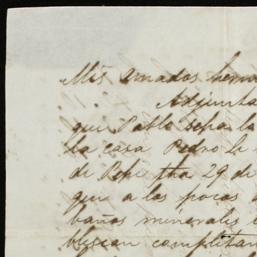 Mis amados herm
Adjunta
que Pablo sepa la
la casa Pedro le
de Pepe fha 29 de
que a los pocos d
baños minerales
buscan completam